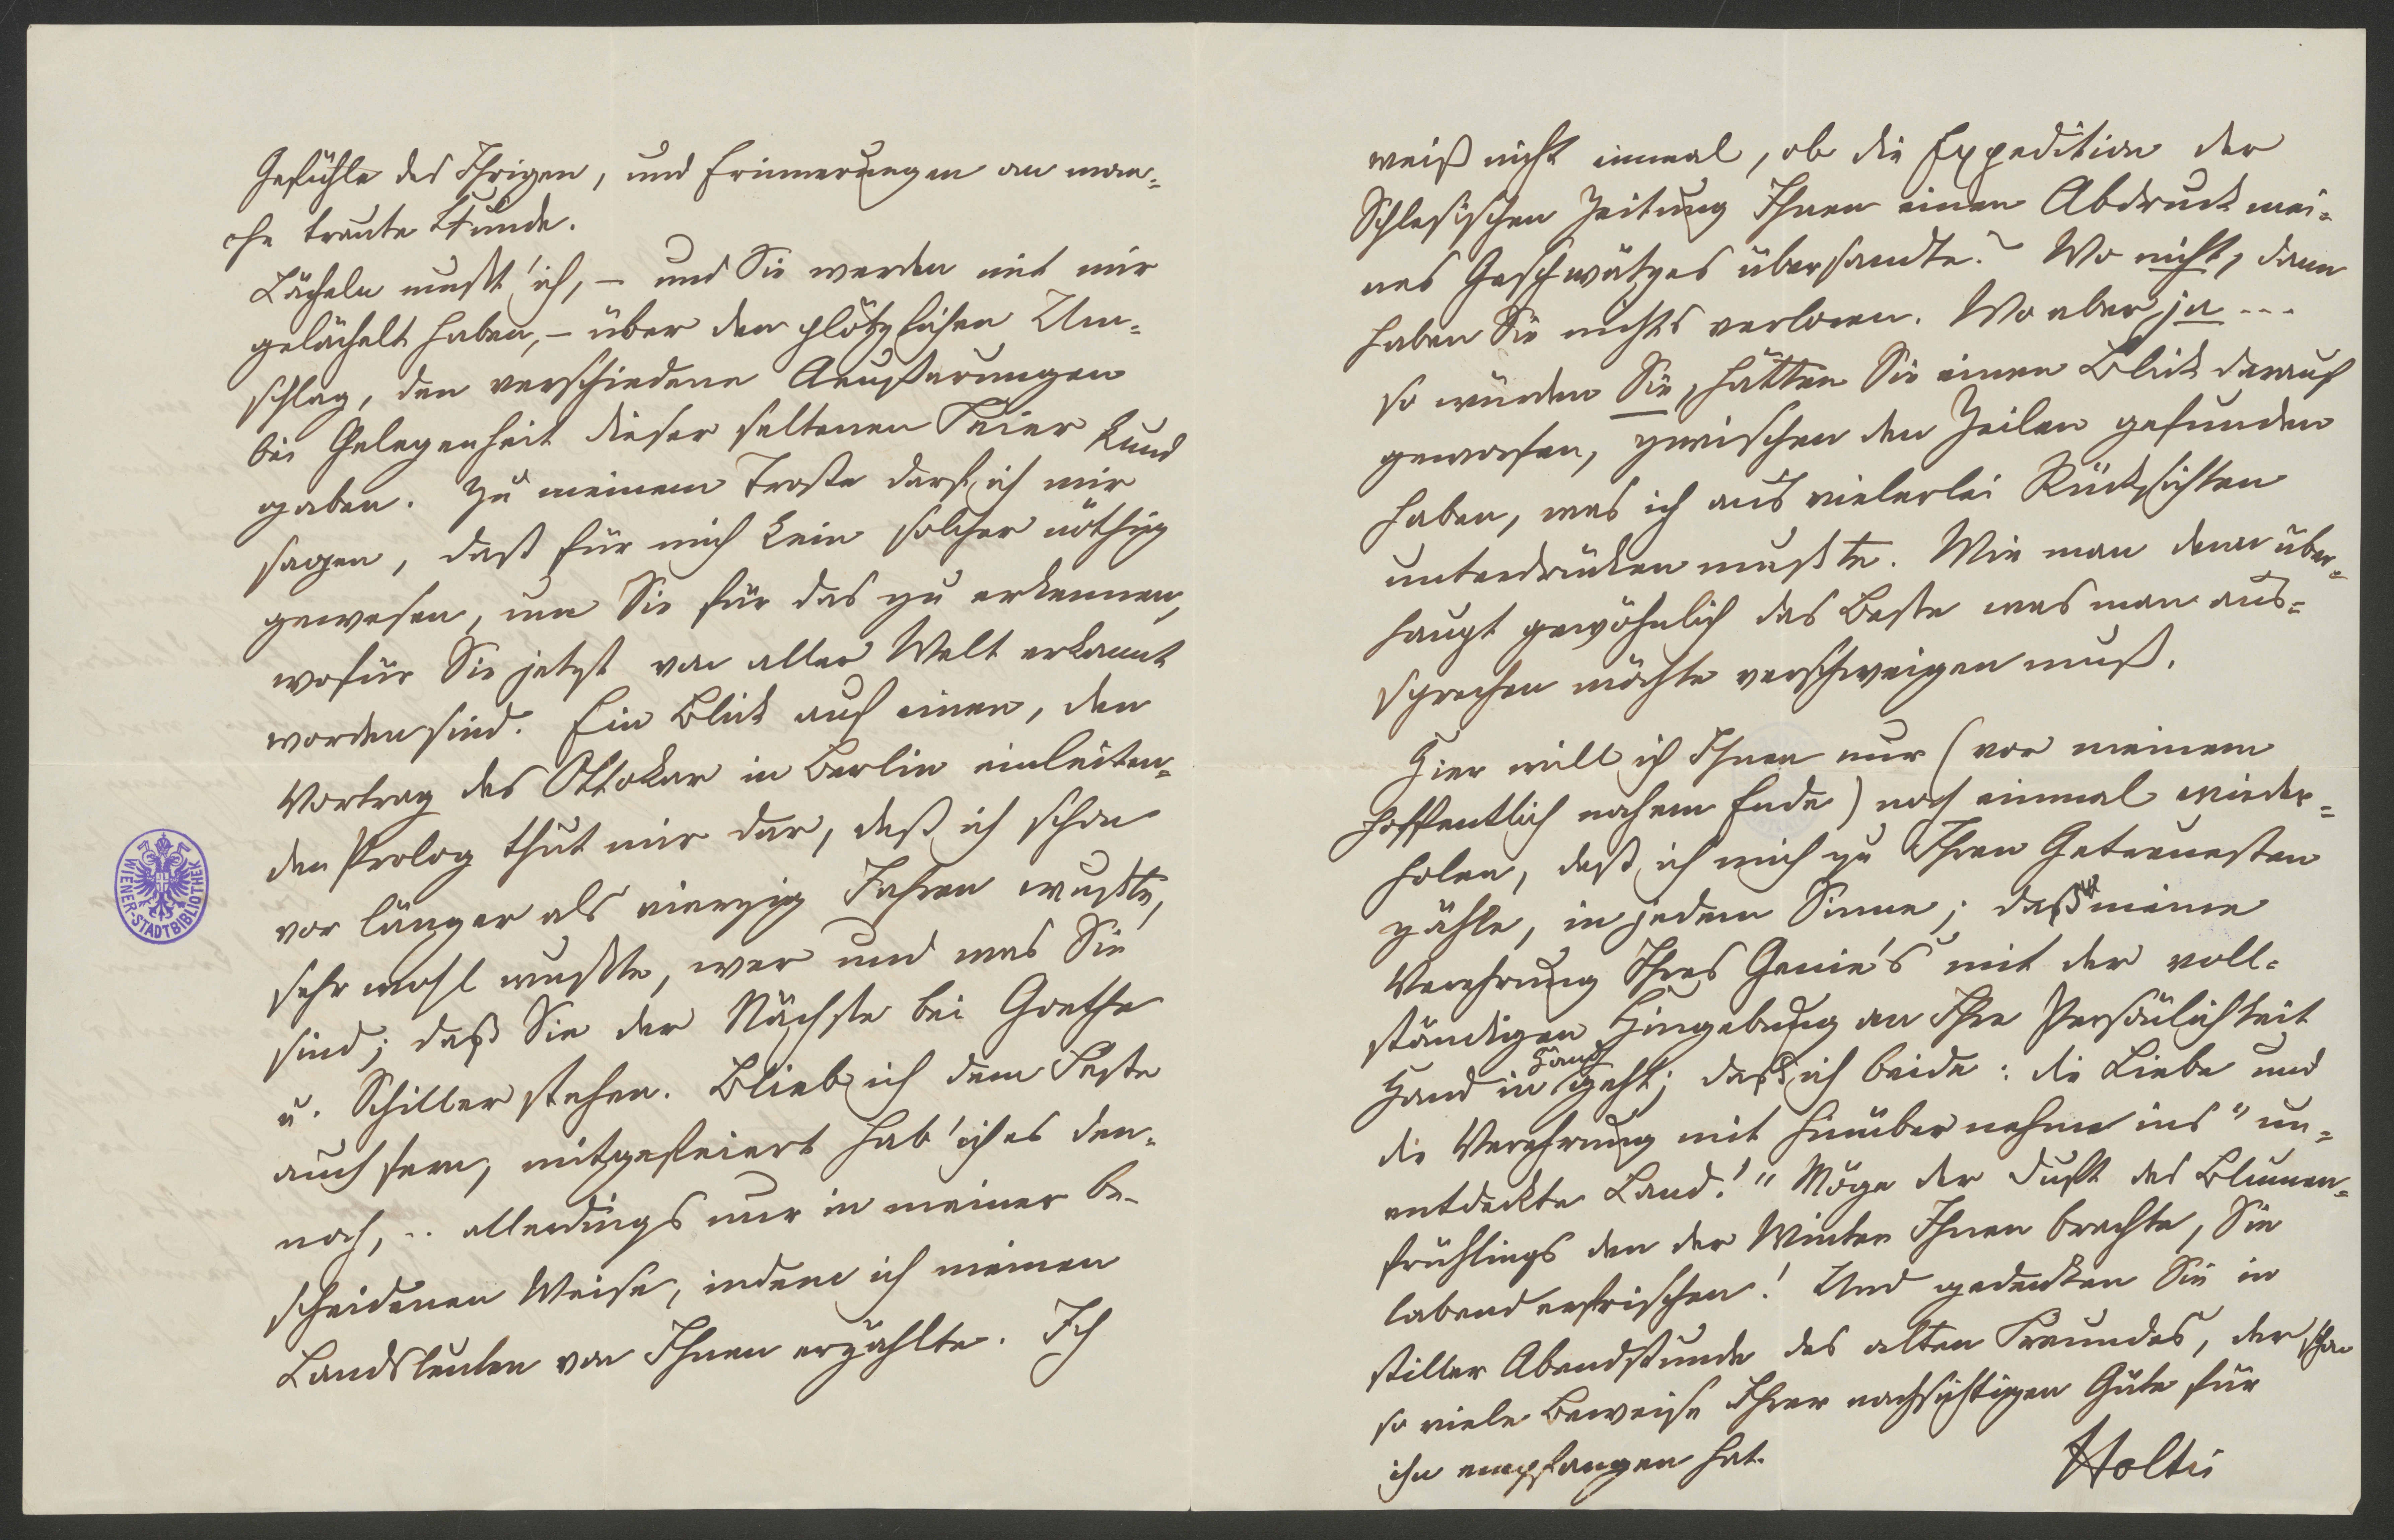 Gefühle des Ihrigen, und Erinnerungen an man-
che traute Stunde.
Lächeln mußt' ich, – und Sie werden mit mir
gelächelt haben, – über den plötzlichen Um-
schlag, den verschiedene Aeußerungen
bei Gelegenheit dieser seltenen Feier kund
gaben. Zu meinem Troste darf ich mir
sagen, daß für mich kein solcher nöthig
gewesen, um Sie für das zu erkennen,
wofür Sie jetzt von aller Welt erkannt
worden sind. Ein Blick auf einen, den
Vortrag des Ottokar in Berlin einleiten-
den Prolog thut mir dar, daß ich schon
vor länger als vierzig Jahren wußte,
sehr wohl wußte, wer und was Sie
sind; daß Sie der Nächste bei Goethe
u. Schiller stehen. Blieb ich dem Feste
auch fern, mitgefeiert hab' ich es den-
noch, .. allerdings nur in meiner be-
scheidenen Weise, indem ich meinen
Landsleuten von Ihnen erzählte. Ich
WIENER-STADTBIBLIOTHEK
weiß nicht einmal, ob die Expedition der
Schlesischen Zeitung Ihnen einen Abdruck mei-
nes Geschwätzes übersandte? Wo nicht, dann
haben Sie nichts verloren. Wo aber ja ...
so würden Sie, hätten Sie einen Blick darauf
geworfen, zwischen den Zeilen gefunden
haben, was ich aus vielerlei Rücksichten
unterdrücken mußte. Wie man denn über-
haupt gewöhnlich das Beste was man aus-
sprechen möchte verschweigen muß.
Hier will ich Ihnen nur (vor meinem
hoffentlich nahem Ende) noch einmal wieder-
holen, daß ich mich zu Ihren Getreuesten
zähle, in jedem Sinne; daß meine
Verehrung Ihres Genie's mit der voll-
ständigen Hingebung an Ihre Persönlichkeit
Hand in Hand geht; daß ich beide: die Liebe und
die Verehrung mit hinüber nehme ins "un-
entdeckte Land!" Möge der Duft des Blumen-
frühlings den der Winter Ihnen brachte, Sie
labend erfrischen! Und gedenken Sie in
stiller Abendstunde des alten Freundes, der schon
so viele Beweise Ihrer nachsichtigen Güte für
ihn empfangen hat.
Holtei